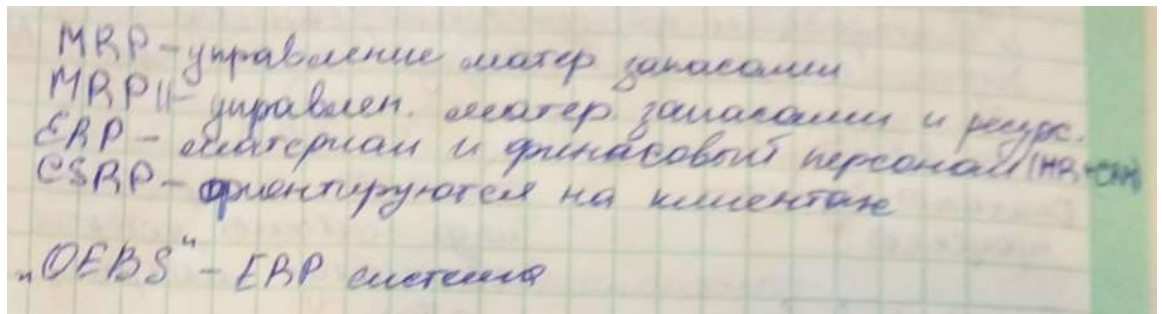 MRP - управление матер запасами
MRP II - управлен. матер. запасами и ресурс.
ERP - материал и финасовый персонал (HR, CRM)
CSRP - ориентируются на клиентах
„OEBS“ - ERP система